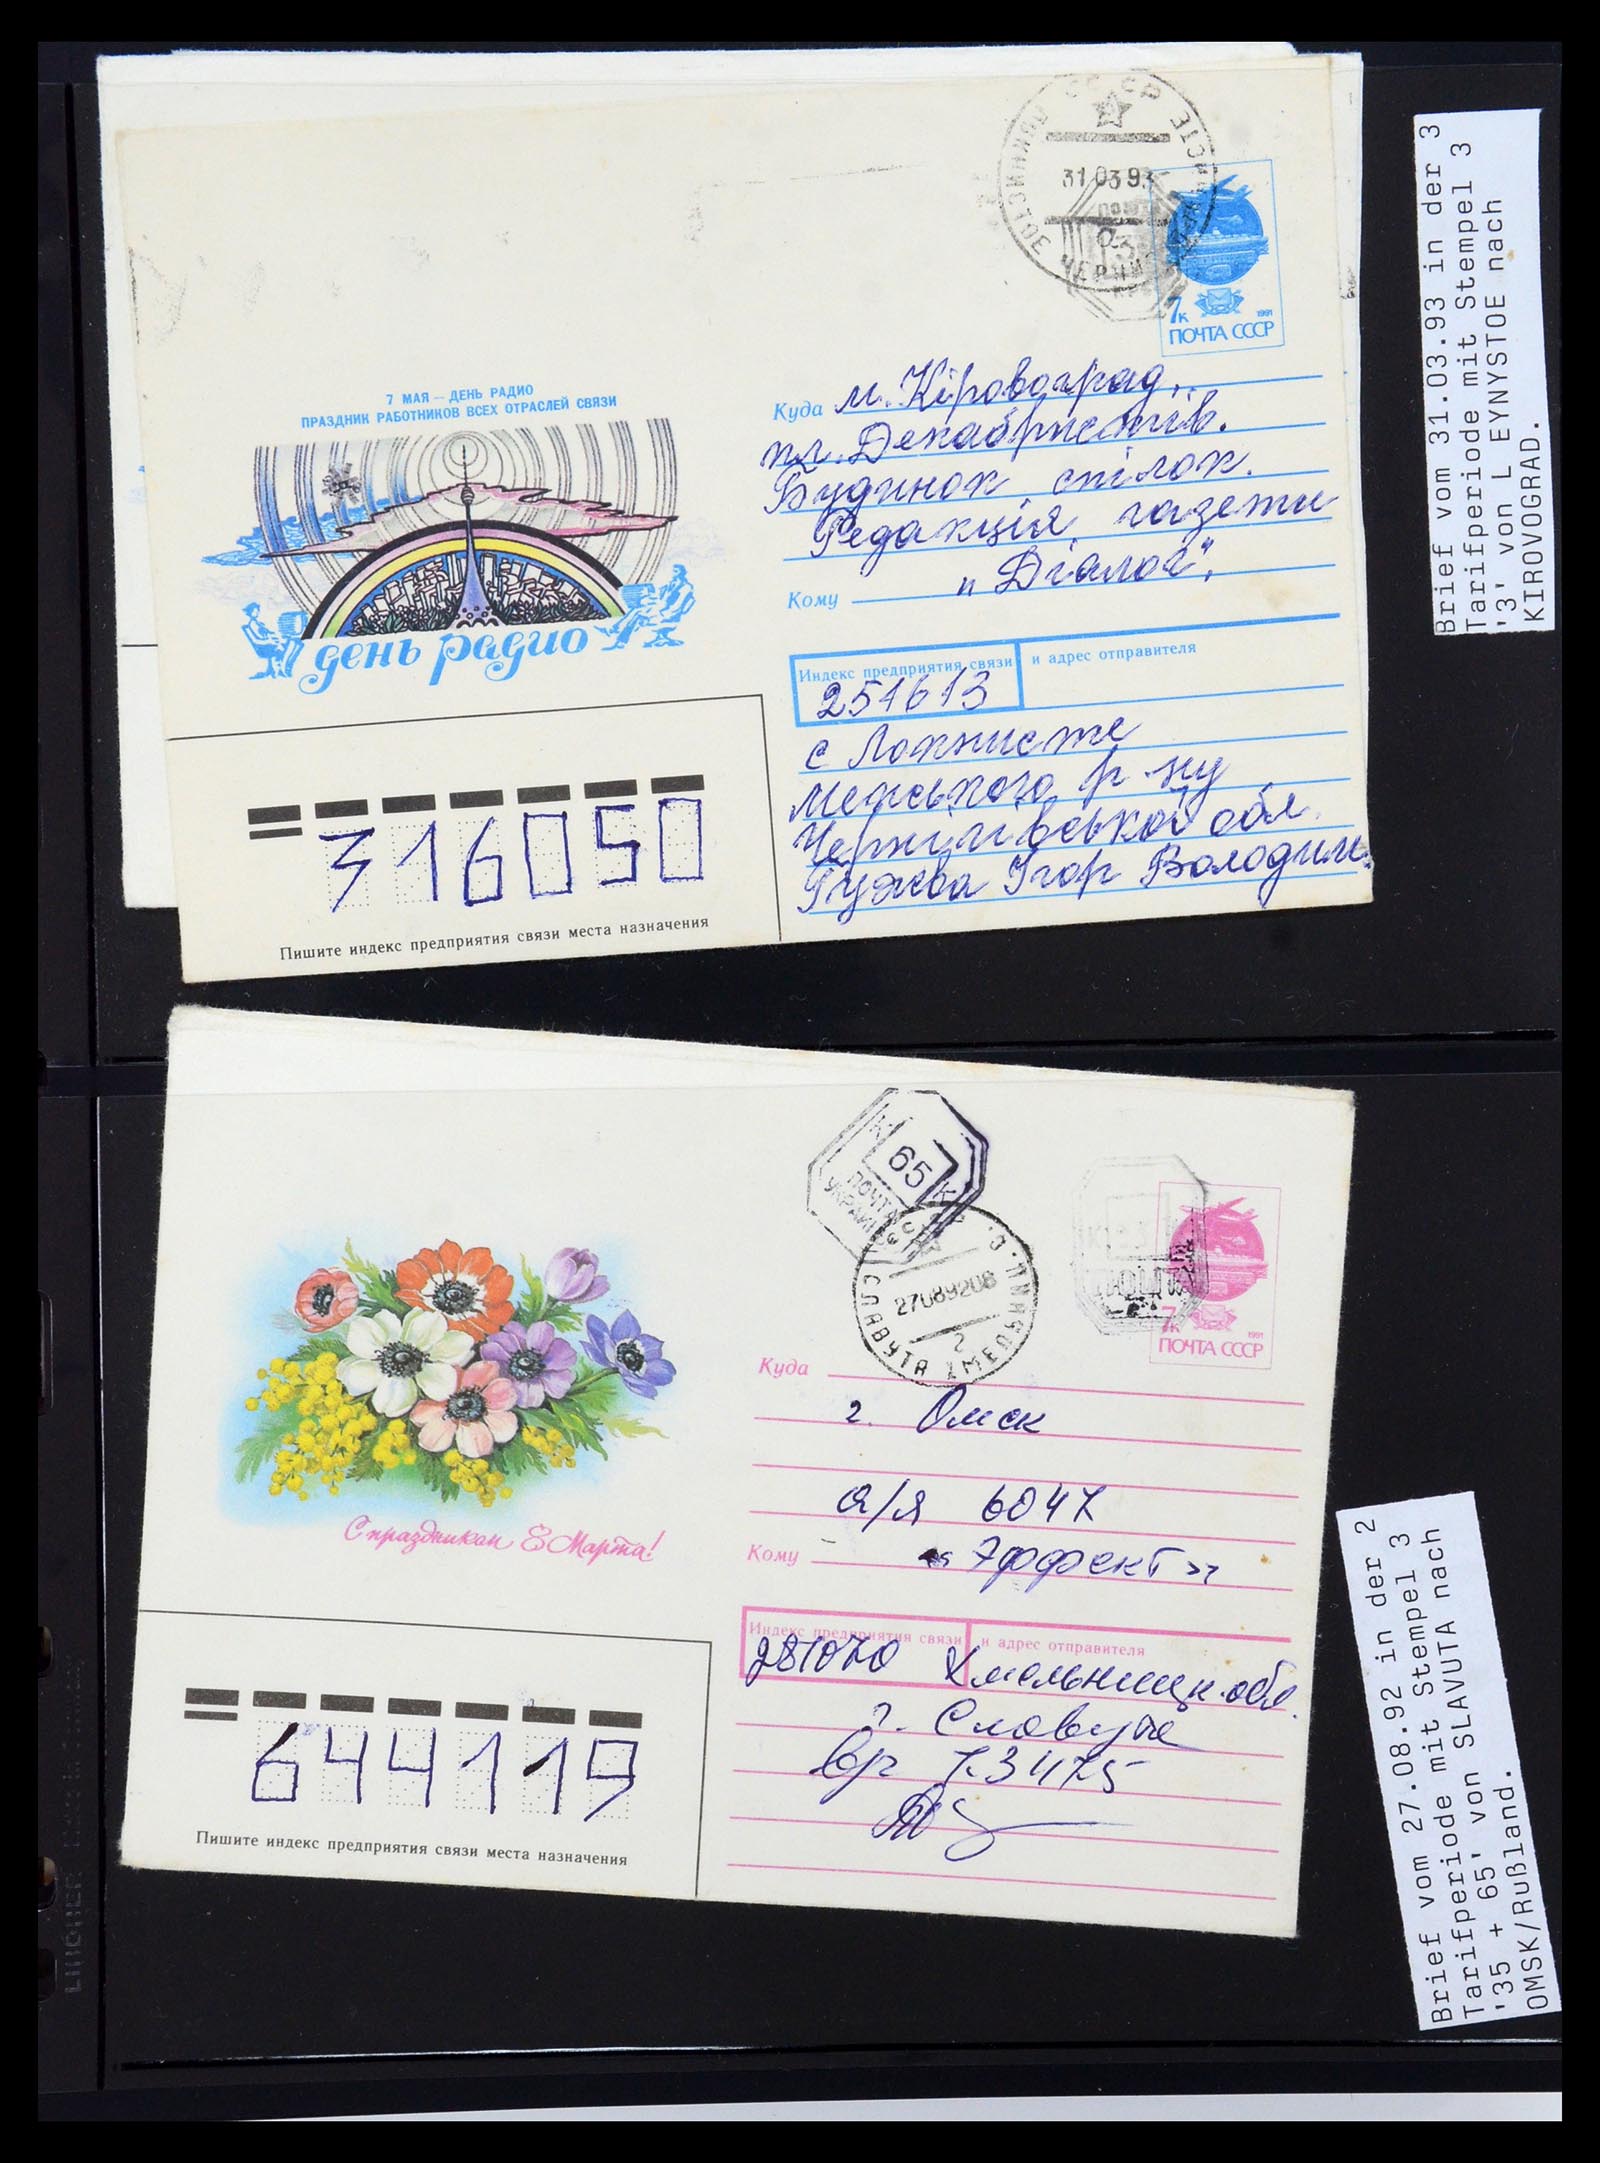 7 МАЯ — ДЕНЬ РАДИО
ПРАЗДНИК РАБОТНИКОВ ВСЕХ ОТРАСЛЕЙ СВЯЗИ
день радио
СССР
31 03 93
7к
1991
ПОЧТА СССР
Куда м. Кіровоград,
пл. Декабристів.
Будинок спілок.
Редакція газети
Кому „Діалог".
Индекс предприятия связи и адрес отправителя
251613
с
Менського р-ну
Чернігівської обл.
Гужва Ігор Володим.
316050
Пишите индекс предприятия связи места назначения
Brief vom 31.03.93 in der 3
Tarifperiode mit Stempel 3
'3' von L EYNYSTOE nach
KIROVOGRAD.
К 65 К
ПОЧТА
27089208
СЛАВУТА ХМЕЛЬНИЦ.
2
7к
1991
ПОЧТА СССР
С праздником 8 Марта!
Куда
г. Омск
а/я 6047
Кому «Эффект»
Индекс предприятия связи и адрес отправителя
281070 Хмельницк. обл.
г. Славута
644119
Пишите индекс предприятия связи места назначения
Brief vom 27.08.92 in der 2
Tarifperiode mit Stempel 3
'35 + 65' von SLAVUTA nach
OMSK/Rußland.